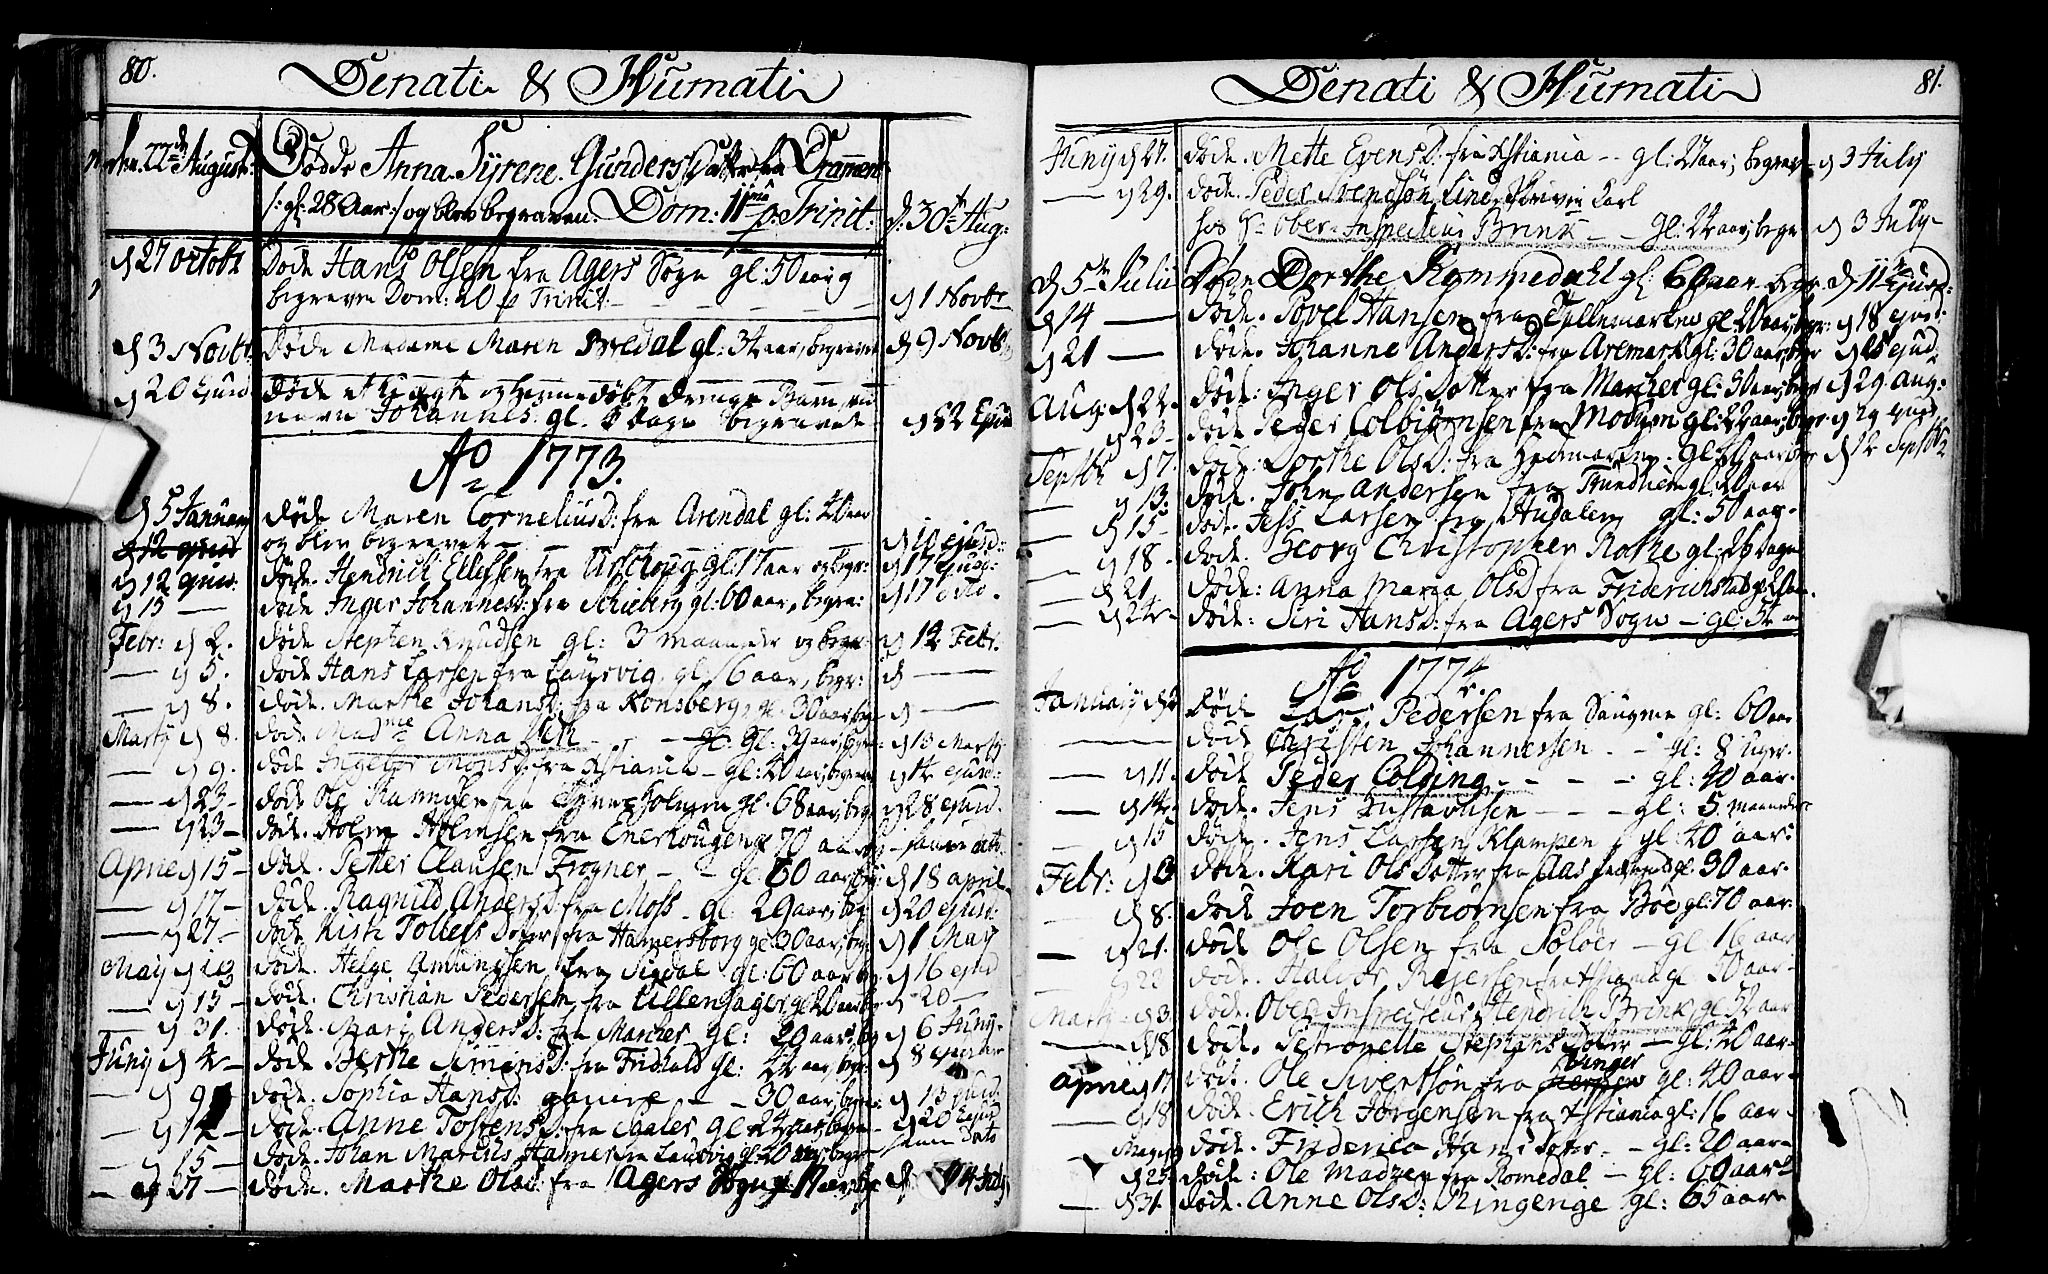 80.
Denati & Humati
d. 22de August: Døde Anna Syrene Gunders Datter fra Drammen
/: gl: 28 Aar :/ og blev begraven. Dom: 11ma p. Trinit: d: 30te Aug:
d 27 Octobr Døde Hans Olsen fra Agers Sogn gl: 50 aar og
begraven Dom: 20 p Trinit. d 1 Novbr
d 3 Novbr Døde Madame Maren Bredal gl: 34 aar, begravet d 9 Novbr
d 20 Ejusd Døde et Uægte og hiemmedøbt Drenge Barn ved
navn Johannes. gl. Dage begravet d 22 Ejusd
Ao 1773.
d 5 January døde Maren Cornelius D: fra Arendal gl: 40 aar
og blev begravet d 10 ejusd:
d 12 ejusd
d 12 ejusd. døde. Hendrich Ellefsen fra gl: 17 aar og begr: d 17 Ejusd:
d 15 — døde Inger Johannes D: fra Schieberg gl: 60 aar, begra: d 17 dito.
Febr: d 2. døde Stephen Knudsen gl: 3 maaneder og begr: d 12 Febr.
— d 5. døde Hans Larsen fra Laurvig, gl. 16 aar, begr: d —
— d 8. døde. Marthe Johans D: fra Konsberg, gl. 30 aar, beg d —
Marty d 8. død. Madme Anna gl: 39 aar, begr: d 13 Marty.
— d 9. død Ingebor Mons D: fra Xstiania — gl: 40 aar, begraven d 14 ejusd:
— d 23 — død Ole fra gl. 68 aar, beg d 28 ejusd.
— d 23 — død. Holm Holmsen fra Enerhougen gl 70 aar — samme dato.
April d 15 — død. Petter Clausen Frogner — gl: 60 aar begr: d 18 april
— d 17 — død. Ragnild Anders D: fra Moss — gl: 29 aar, beg: d 20 ejusd:
— d 27 — død Kisti Tollefs Doter, fra Hamersborg gl: 30 aar, beg: d 1 May
May d 10 død. Helge Amundsen fra Sigdal gl: 60 aar beg: d 16 ejusd
— d 15 — død. Christian Pedersen, fra Ullensager gl: 20 aar d — 20 —
— d 31. død. Mari Anders D: fra Marcher gl: 20 aar beg d 6 Juny.
Juny d 4 — død. Berthe Simens D: fra Fridhald gl: 44 aar, begr: d 8 ejusd
— d 9 død. Sophia Hans D: — 30 aar, begr: d 13 ejusd:
— d 14 — død. Anne Tostens D: fra gl: 24 aar, begr — d 20 Ejusd
— d 15 — død. Johan Marcus Hamer fra Laurvig gl: 40 aar, begr samme Dato
— d 27 — døde. Marthe Ols D: fra Agers Sogn gl: 17 aar, be d 4 July
81.
Denati & Humati
Juny d 27. døde. Mette Evens D: fra Xstiania — gl: 27 aar; begrave d 3 July
— d 29. døde. Peder Svendsøn Lind, Karl
hos Hr Ober-Inspecteur Brink — gl: 24 aar; begr d 3 July —
d 5te July Døde Dorthe Rommedahl gl: 60 aar begr: d 11te Ejusd:
d 14 — døde. Povel Hansen fra Tellemarken gl: 20 aar, begr: d 18 ejusd:
d 21 — døde. Johanne Anders D: fra Aremark gl: 30 aar, begr d 25 ejusd
Aug: d 22. død: Inger Ols Dotter fra Marcher gl: 30 aar, begr d 29 Aug:
d 23 — død Peder Colbiørnsen fra Modum gl: 22 aar, begr d 29 ejusd
Septbr d 7. død: Dorthe Ols D: fra Hedemarken. gl: 60 aar begr d 12 Septbr
— d 13. død. John Andersen fra Trundhiem gl: 20 aar
— d 15 — død. Jess Larsen fra Hudalen gl: 50 aar.
— d 18. død. Georg Christopher Rothe gl: 26 Dage
— d 21 — døde: Anna Maria Ols D fra Friderichstad gl: 20 aar.
— d 24 — døde: Siri Hans D: fra Agers Sogn — gl: 54 aar
Ao 1774.
January d 2 døde Lars Pedersen fra Saugene gl: 60 aar
— død Christen Johannessen — gl: 8 Uger.
— d 11. død Peder Colding — gl: 40 aar.
— d 14 — døde. Jens Gustavusen — gl: 5 maaneder
— d 15 døde. Jens Larsen Klampen, gl: 40 aar:
Febr: d 3 døde. Kari Ols Dotter fra Aas gl: 30 aar.
— d 8. død Joen Torbiørnsen fra Boe gl: 70 aar:
— d 21. død Ole Olsen fra Soløer — gl: 16 aar
— d 22 død. Halvor fra Xstiania gl: 50 aar —
Marty — d 3 døde. Ober Inspecteur Hendrich Brink gl: 52 aar
— d 18 død. Petronelle Stephans Doter — gl: 40 aar —
april d 17 død. Ole Sivertsøn fra Vinger gl: 40 aar —
— d 18 død. Erich Jørgensen fra Xstiania gl: 16 aar.
— May d død. Friderica Hans Dotr. — gl: 20 aar
d 25 døde: Ole Madzen fra Romedal — gl: 60 aar
— d 31. døde. Anne Ols D: Ringenge gl: 65 aar